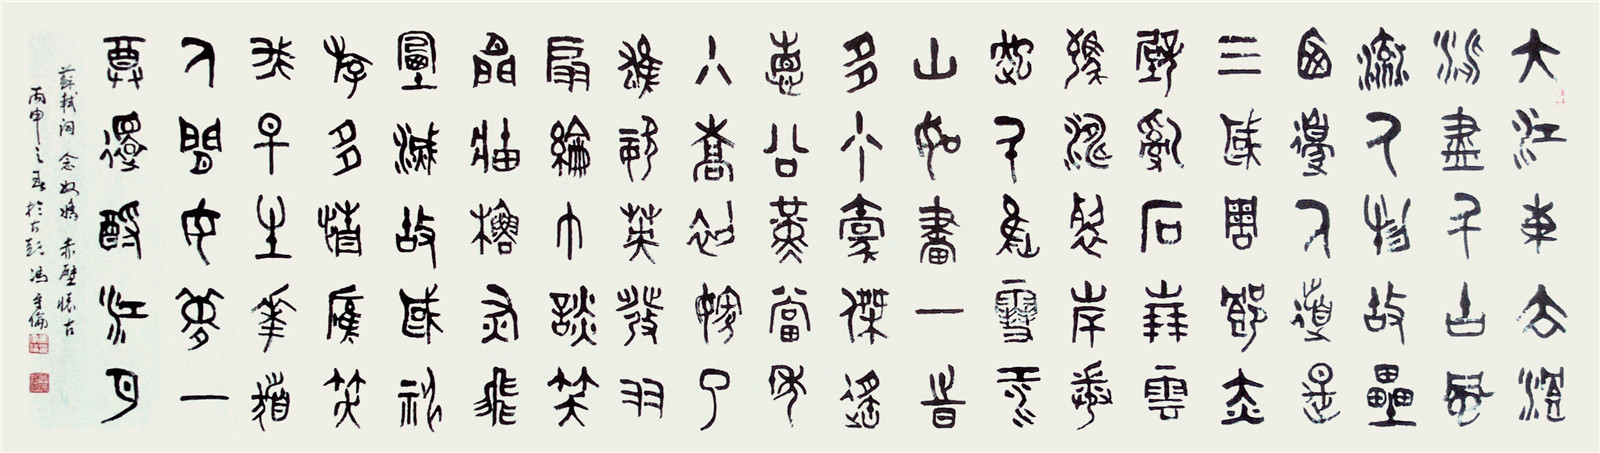 大江東去浪
淘盡千古風
流人物故壘
西邊人道是
三國周郎赤
壁亂石崩雲
驚濤裂岸卷
起千堆雪江
山如畫一時
多少豪傑遙
想公瑾當年
小喬初嫁了
雄姿英發羽
扇綸巾談笑
間檣櫓灰飛
煙滅故國神
遊多情應笑
我早生華髮
人間如夢一
尊還酹江月
蘇軾詞 念奴嬌 赤壁懷古
丙申之春於古彭馮